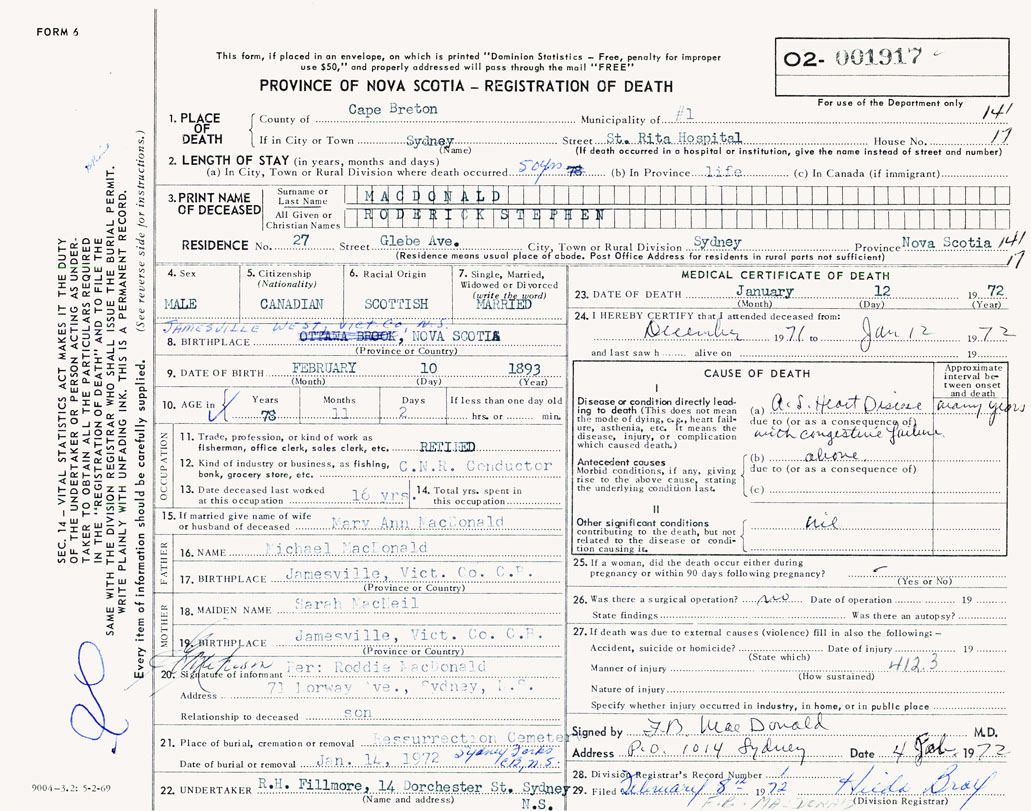 FORM 6
This form, if placed in an envelope, on which is printed "Dominion Statistics – Free, penalty for improper
use $50," and properly addressed will pass through the mail "FREE"
PROVINCE OF NOVA SCOTIA – REGISTRATION OF DEATH
O2- 001917
For use of the Department only
1. PLACE OF DEATH
County of Cape Breton Municipality of #1 141
If in City or Town Sydney Street St. Rita Hospital House No. 17
(Name) (If death occurred in a hospital or institution, give the name instead of street and number)
2. LENGTH OF STAY (in years, months and days)
(a) In City, Town or Rural Division where death occurred 50yrs 78 (b) In Province life (c) In Canada (if immigrant)
3. PRINT NAME OF DECEASED
Surname or Last Name MACDONALD
All Given or Christian Names RODERICK STEPHEN
RESIDENCE No. 27 Street Glebe Ave. City, Town or Rural Division Sydney Province Nova Scotia 141
(Residence means usual place of abode. Post Office Address for residents in rural parts not sufficient) 17
4. Sex
MALE
5. Citizenship
(Nationality)
CANADIAN
6. Racial Origin
SCOTTISH
7. Single, Married,
Widowed or Divorced
(write the word)
MARRIED
JAMESVILLE WEST, VICT Co, N.S.
8. BIRTHPLACE OTTAWA BROOK, NOVA SCOTIA
(Province or Country)
9. DATE OF BIRTH FEBRUARY 10 1893
(Month) (Day) (Year)
10. AGE in
Years Months Days If less than one day old
78 11 2 hrs. or min.
OCCUPATION
11. Trade, profession, or kind of work as
fisherman, office clerk, sales clerk, etc. RETIRED
12. Kind of industry or business, as fishing,
bank, grocery store, etc. C.N.R. Conductor
13. Date deceased last worked
at this occupation 16 yrs.
14. Total yrs. spent in
this occupation
15. If married give name of wife
or husband of deceased Mary Ann MacDonald
FATHER
16. NAME Michael MacDonald
17. BIRTHPLACE Jamesville, Vict. Co. C.B.
(Province or Country)
MOTHER
18. MAIDEN NAME Sarah MacNeil
19. BIRTHPLACE Jamesville, Vict. Co. C.B.
(Province or Country)
Per: Roddie MacDonald
20. Signature of informant
Address 71 Norway Ave., Sydney, N.S.
Relationship to deceased son
21. Place of burial, cremation or removal Ressurrection Cemetery
Date of burial or removal Jan. 14, 1972 Sydney Forks
C.B., N.S.
22. UNDERTAKER R.H. Fillmore, 14 Dorchester St. Sydney
(Name and address) N.S.
MEDICAL CERTIFICATE OF DEATH
23. DATE OF DEATH January 12 1972
(Month) (Day)
24. I HEREBY CERTIFY that I attended deceased from:
December 1971 to Jan 12 1972
and last saw h alive on 19
CAUSE OF DEATH
Approximate
interval be-
tween onset
and death
I
Disease or condition directly lead-
ing to death (This does not mean
the mode of dying, e.g., heart fail-
ure, asthenia, etc. It means the
disease, injury, or complication
which caused death.)
(a) A.S. Heart Disease many years
due to (or as a consequence of)
with congestive failure.
Antecedent causes
Morbid conditions, if any, giving
rise to the above cause, stating
the underlying condition last.
(b) above
due to (or as a consequence of)
(c)
II
Other significant conditions
contributing to the death, but not
related to the disease or condi-
tion causing it.
nil
25. If a woman, did the death occur either during
pregnancy or within 90 days following pregnancy?
(Yes or No)
26. Was there a surgical operation? no Date of operation 19
State findings Was there an autopsy?
27. If death was due to external causes (violence) fill in also the following: –
Accident, suicide or homicide? Date of injury 19
(State which)
Manner of injury 412.3
(How sustained)
Nature of injury
Specify whether injury occurred in industry, in home, or in public place
Signed by F.B. MacDonald M.D.
Address P.O. 1014 Sydney Date 4 Feb. 1972
28. Division Registrar's Record Number
29. Filed February 8th 1972 Hilda Bray
(Division Registrar)
SEC. 14 – VITAL STATISTICS ACT MAKES IT THE DUTY
OF THE UNDERTAKER OR PERSON ACTING AS UNDER-
TAKER TO OBTAIN ALL THE PARTICULARS REQUIRED
IN THE "REGISTRATION OF DEATH" AND TO FILE THE
SAME WITH THE DIVISION REGISTRAR WHO SHALL ISSUE THE BURIAL PERMIT.
WRITE PLAINLY WITH UNFADING INK. THIS IS A PERMANENT RECORD.
Every item of information should be carefully supplied. (See reverse side for instructions.)
9004-3.2: 5-2-69